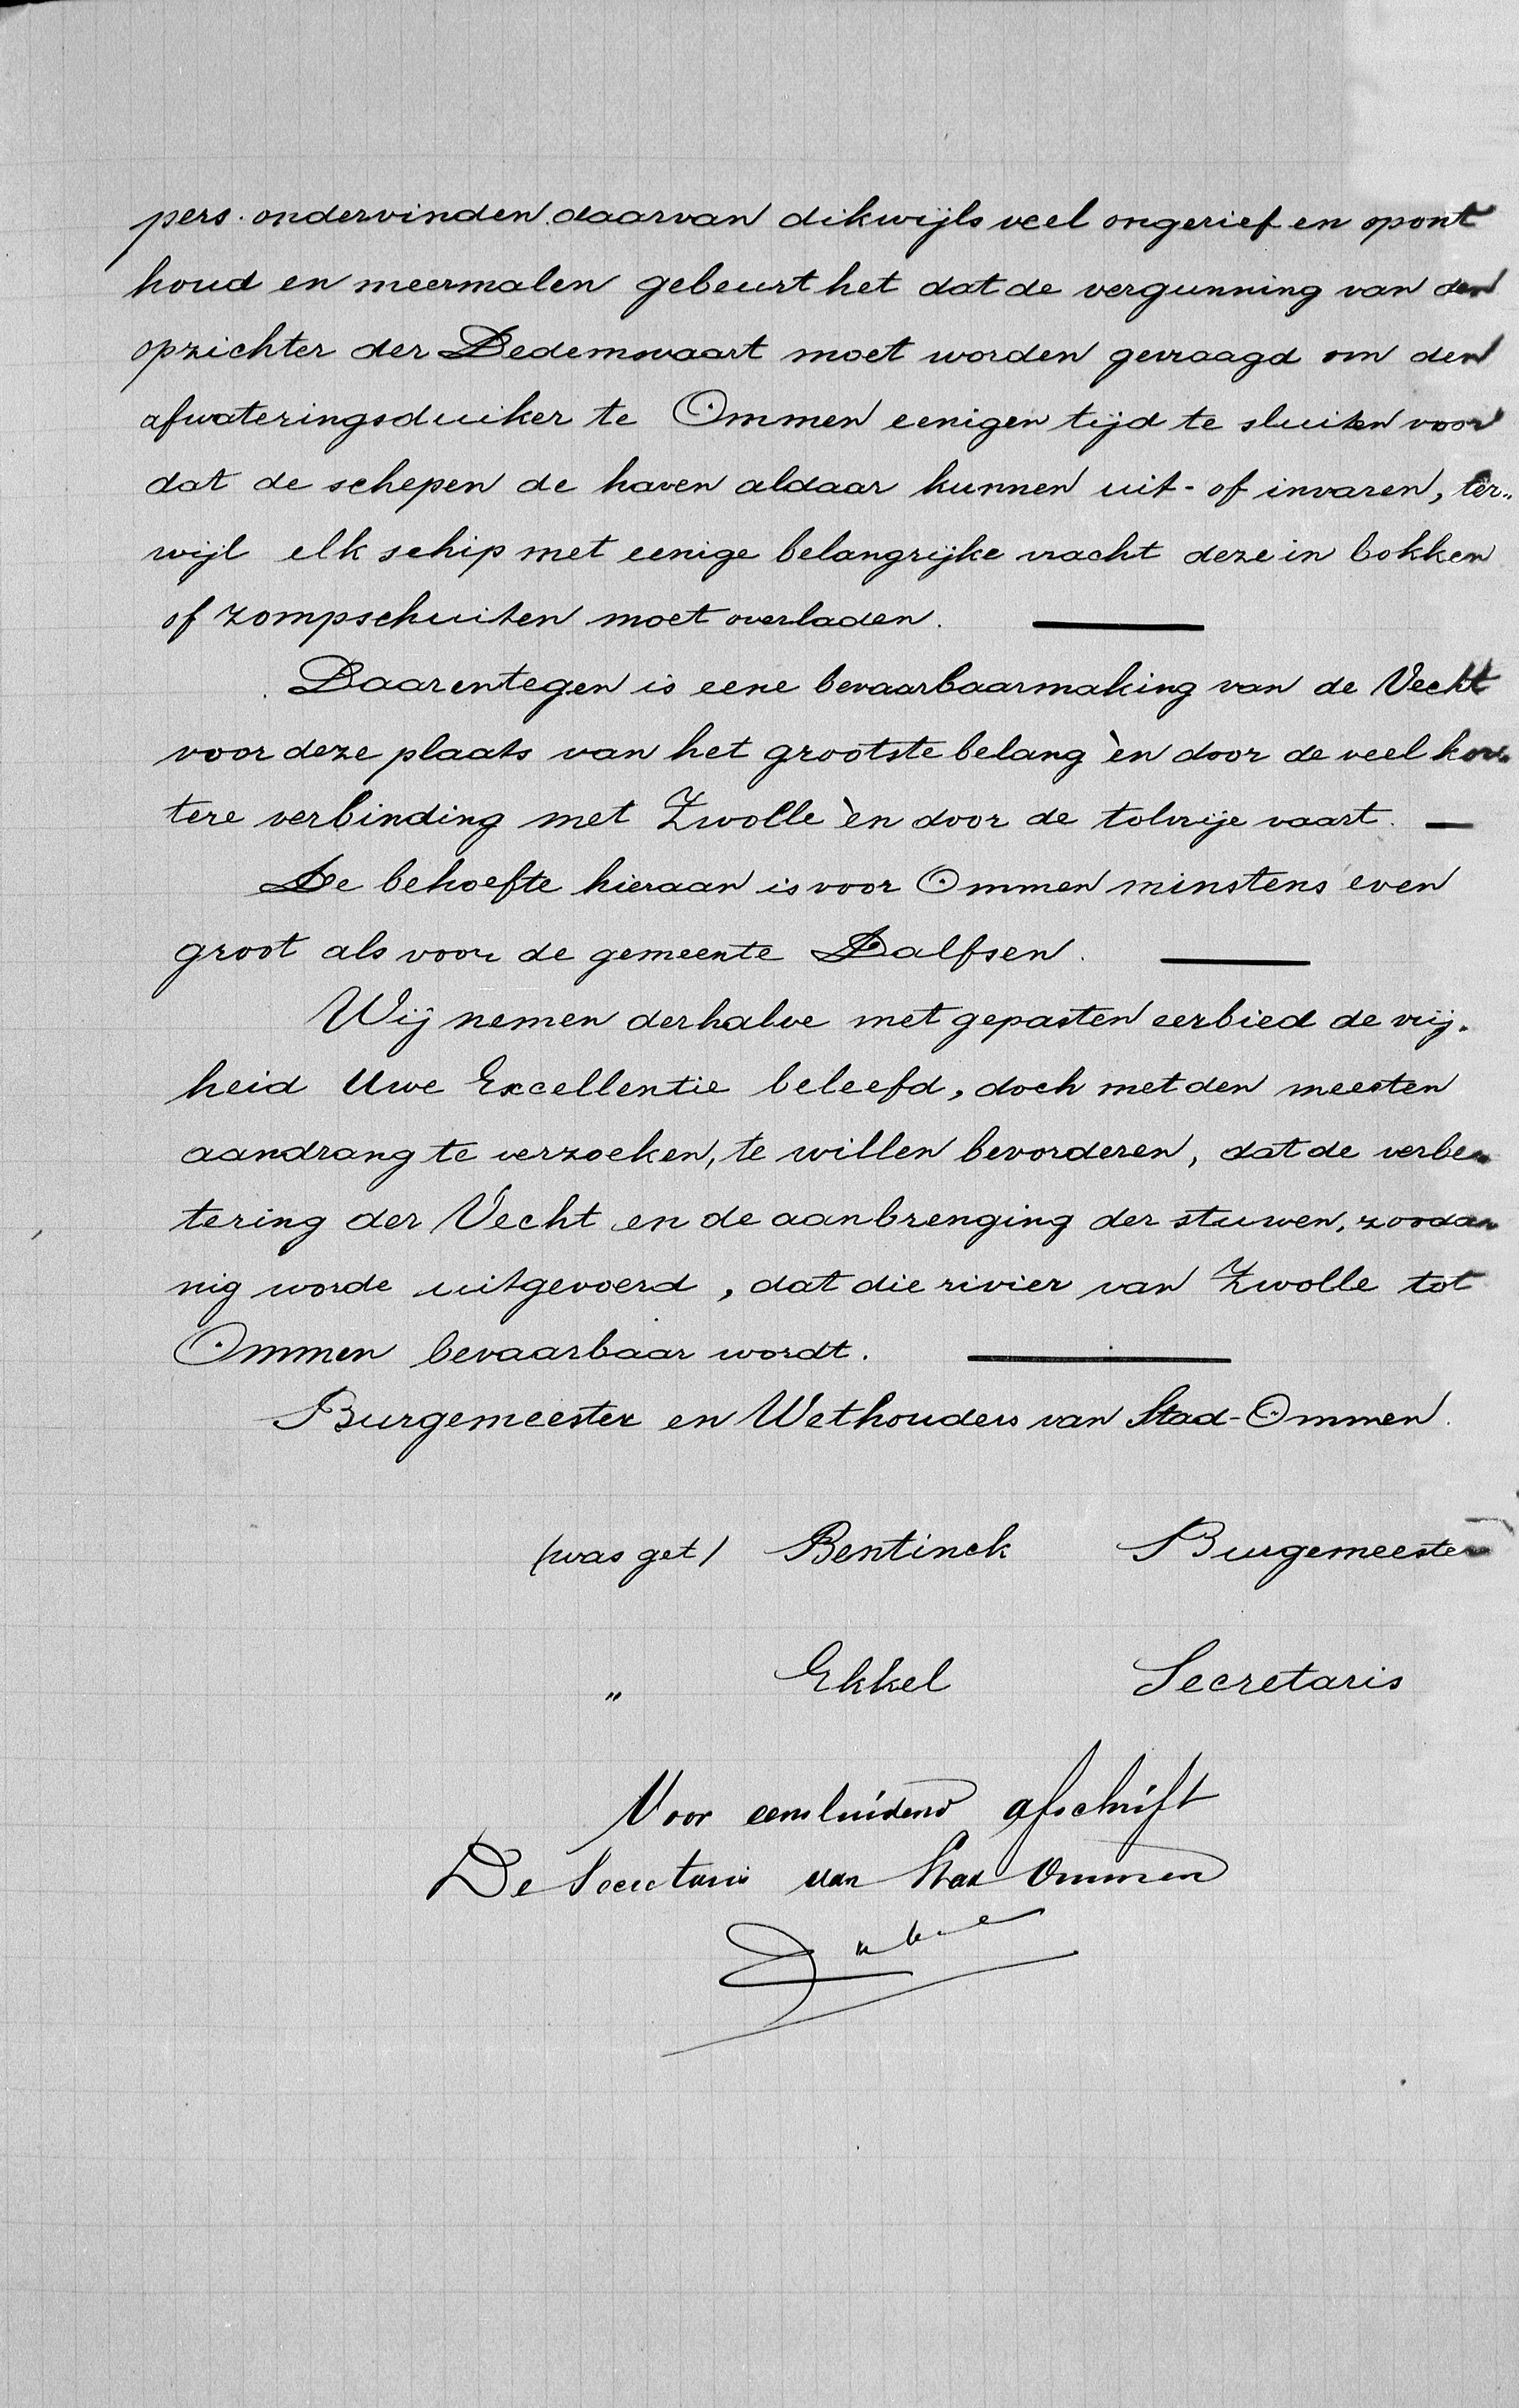 pers. ondervinden daarvan dikwijls veel ongerief en opont
houd en meermalen gebeurt het dat de vergunning van den
opzichter der Dedemsvaart moet worden gevraagd om den
afwateringsduiker te Ommen eenigen tijd te sluiten voor
dat de schepen de haven aldaar kunnen uit- of invaren, ter„
wijl elk schip met eenige belangrijke vracht deze in bokken
of zompschuiten moet overladen.
Daarentegen is eene bevaarbaarmaking van de Vecht
voor deze plaats van het grootste belang èn door de veel kor„
tere verbinding met Zwolle èn door de tolvrije vaart.
De behoefte hieraan is voor Ommen minstens even
groot als voor de gemeente Dalfsen.
Wij nemen derhalve met gepasten eerbied de vrij„
heid Uwe Excellentie beleefd, doch met den meesten
aandrang te verzoeken, te willen bevorderen, dat de verbe„
tering der Vecht en de aanbrenging der stuwen, zoodan
nig worde uitgevoerd, dat die rivier van Zwolle tot
Ommen bevaarbaar wordt.
Burgemeester en Wethouders van Stad-Ommen.
(was get) Bentinck Burgemeester
„ Ekkel Secretaris
Voor eensluidend afschrift
De Secretaris van Stad Ommen